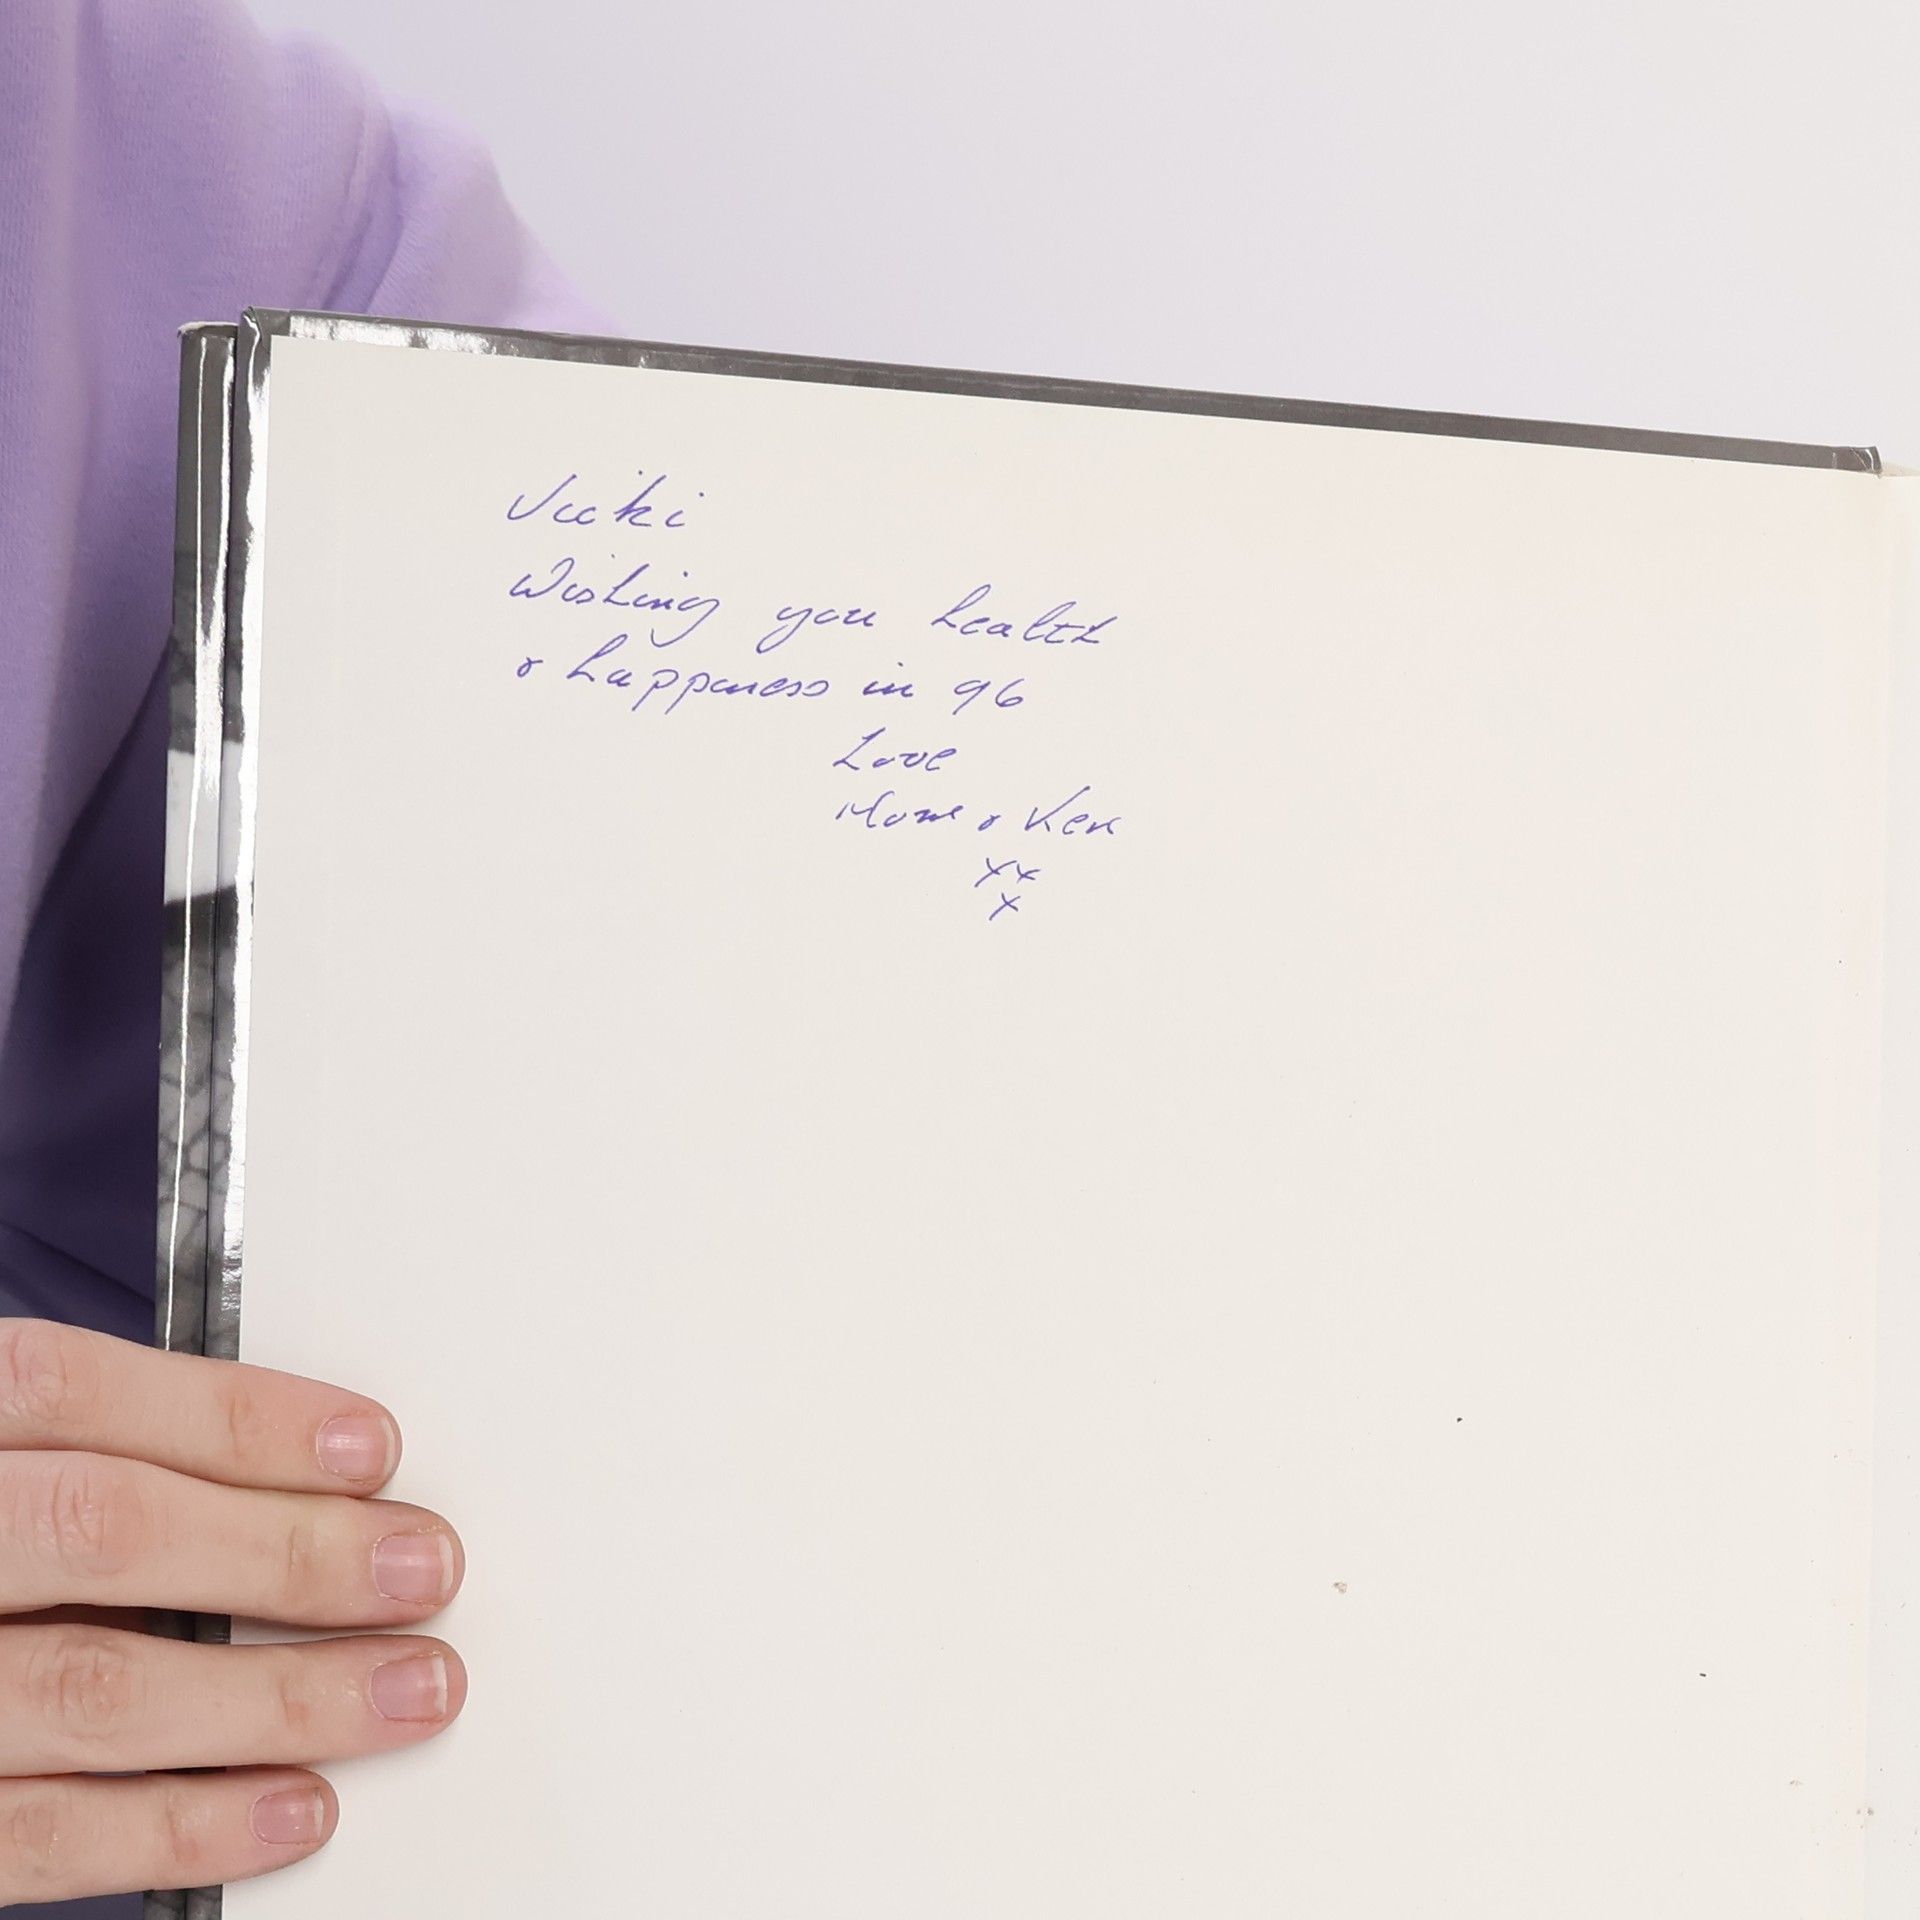 Vicki
Wishing you health
& happiness in 96
Love
Mom & Ken
xx
x